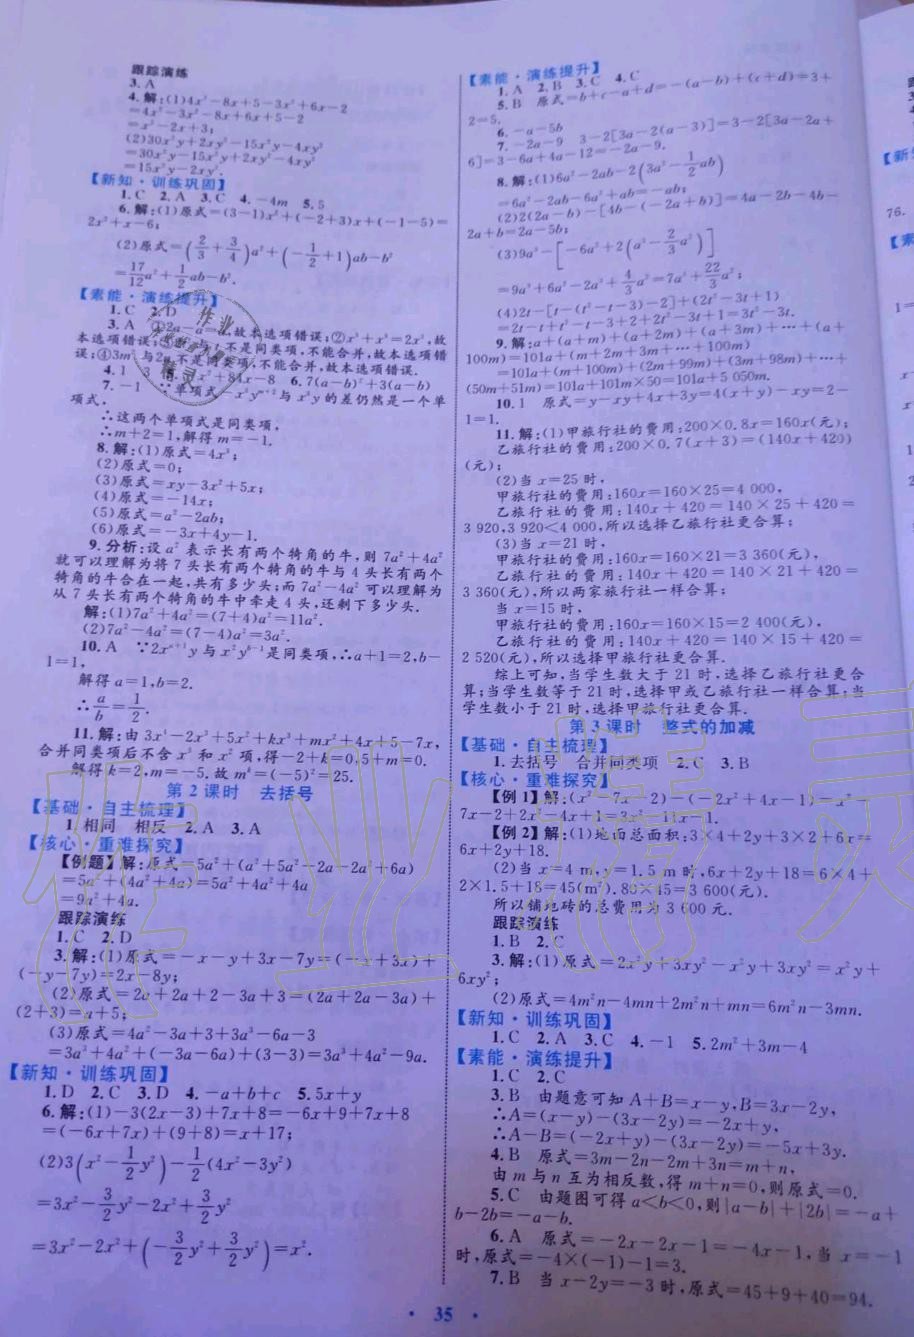 跟踪演练
3. A
4. 解:(1)4x²-8x+5-3x²+6x-2
=4x²-3x²-8x+6x+5-2
=x²-2x+3;
(2)30x²y+2xy²-15x²y-4xy²
=30x²y-15x²y+2xy²-4xy²
=15x²y-2xy².
【新知·训练巩固】
1. C 2. A 3. C 4. -4m 5. 5
6. 解:(1)原式=(3-1)x²+(-2+3)x+(-1-5)=
2x²+x-6;
(2)原式=(2/3+3/4)a²+(-1/2+1)ab-b²
=17/12a²+1/2ab-b².
【素能·演练提升】
1. C 2. D
3. A ①2a-a=a,故本选项错误;②x³+x³=2x³,故
本选项错误;③ 与 不是同类项,不能合并,故本选项错
误;④3m 与2 不是同类项,不能合并,故本选项错误.
4. 1 3 x²+84x-8 6. 7(a-b)²+3(a-b)
7. -1 ∵单项式-x³yᵐ⁺²与x³y的差仍然是一个单
项式,
∴这两个单项式是同类项,
∴m+2=1,解得m=-1.
8. 解:(1)原式=4x³;
(2)原式=0;
(3)原式=xy-3x²+5x;
(4)原式=-14x;
(5)原式=a²-2ab;
(6)原式=-3x+4y-1.
9. 分析:设a²表示长有两个犄角的牛,则7a²+4a²
就可以理解为将7头长有两个犄角的牛与4头长有两个
犄角的牛合在一起,共有多少头;而7a²-4a²可以理解为
从7头长有两个犄角的牛中牵走4头,还剩下多少头.
解:(1)7a²+4a²=(7+4)a²=11a².
(2)7a²-4a²=(7-4)a²=3a².
10. A ∵2xᵃ⁺¹y与x²yᵇ⁻¹是同类项,∴a+1=2,b-
1=1,
解得a=1,b=2.
∴a/b=1/2.
11. 解:由3x⁴-2x³+5x²+kx³+mx²+4x+5-7x,
合并同类项后不含x³和x²项,得-2+k=0,5+m=0.
解得k=2,m=-5.故mᵏ=(-5)²=25.
第2课时 去括号
【基础·自主梳理】
1. 相同 相反 2. A 3. A
【核心·重难探究】
【例题】解:原式=5a²+(a²+5a²-2a-2a²+6a)
=5a²+(4a²+4a)=5a²+4a²+4a
=9a²+4a.
跟踪演练
1. C 2. D
3. 解:(1)原式=-x-y+3x-7y=(-x+3x)+
(-y-7y)=2x-8y;
(2)原式=2a+2a+2-3a+3=(2a+2a-3a)+
(2+3)=a+5;
(3)原式=4a²-3a+3+3a³-6a-3
=3a³+4a²+(-3a-6a)+(3-3)=3a³+4a²-9a.
【新知·训练巩固】
1. D 2. C 3. D 4. -a+b+c 5. 5x+y
6. 解:(1)-3(2x-3)+7x+8=-6x+9+7x+8
=(-6x+7x)+(9+8)=x+17;
(2)3(x²-1/2y²)-1/2(4x²-3y²)
=3x²-3/2y²-2x²+3/2y²
=3x²-2x²+(-3/2y²+3/2y²)=x².
【素能·演练提升】
1. A 2. B 3. C 4. C
5. B 原式=b+c-a+d=-(a-b)+(c+d)=3+
2=5.
6. -a-5b
7. -2a-9 3-2[3a-2(a-3)]=3-2[3a-2a+
6]=3-6a+4a-12=-2a-9.
8. 解:(1)6a²-2ab-2(3a²-1/2ab)
=6a²-2ab-6a²+ab=-ab;
(2)2(2a-b)-[4b-(-2a+b)]=4a-2b-4b-
2a+b=2a-5b;
(3)9a³-[-6a²+2(a³-2/3a²)]
=9a³+6a²-2a³+4/3a²=7a³+22/3a²;
(4)2t-[t-(t²-t-3)-2]+(2t²-3t+1)
=2t-t+t²-t-3+2+2t²-3t+1=3t²-3t.
9. 解:a+(a+m)+(a+2m)+(a+3m)+…+(a+
100m)=101a+(m+2m+3m+…+100m)
=101a+(m+100m)+(2m+99m)+(3m+98m)+…+
(50m+51m)=101a+101m×50=101a+5 050m.
10. 1 原式=y-xy+4x+3y=4(x+y)-xy=2-
1=1.
11. 解:(1)甲旅行社的费用:200×0.8x=160x(元);
乙旅行社的费用:200×0.7(x+3)=(140x+420)
(元);
(2)当x=25时,
甲旅行社的费用:160x=160×25=4 000,
乙旅行社的费用:140x+420=140×25+420=
3 920,3 920<4 000,所以选择乙旅行社更合算;
(3)当x=21时,
甲旅行社的费用:160x=160×21=3 360(元),
乙旅行社的费用:140x+420=140×21+420=
3 360(元),所以两家旅行社一样合算;
当x=15时,
甲旅行社的费用:160x=160×15=2 400(元),
乙旅行社的费用:140x+420=140×15+420=
2 520(元),所以选择甲旅行社更合算.
综上可知,当学生数大于21时,选择乙旅行社更合
算;当学生数等于21时,选择甲或乙旅行社一样合算;当
学生数小于21时,选择甲旅行社更合算.
第3课时 整式的加减
【基础·自主梳理】
1. 去括号 合并同类项 2. C 3. B
【核心·重难探究】
【例1】解:(x²-7x-2)-(-2x²+4x-1)=x²-
7x-2+2x²-4x+1=3x²-11x-1.
【例2】解:(1)地面总面积:3×4+2y+3×2+6x=
6x+2y+18.
(2)当x=4 m,y=1.5 m时,6x+2y+18=6×4+
2×1.5+18=45(m²).80×45=3 600(元).
所以铺地砖的总费用为3 600元.
跟踪演练
1. B 2. C
3. 解:(1)原式=2x²y+3xy²-x²y+3xy²=x²y+
6xy²;
(2)原式=4m²n-4mn+2m²n+mn=6m²n-3mn.
【新知·训练巩固】
1. C 2. A 3. C 4. -1 5. 2m²+3m-4
【素能·演练提升】
1. C 2. C
3. B 由题意可知A+B=x-y,B=3x-2y,
∴A=(x-y)-(3x-2y)=-2x+y,
∴A-B=(-2x+y)-(3x-2y)=-5x+3y.
4. B 原式=3m-2n-2m+3n=m+n,
由m与n互为相反数,得m+n=0,则原式=0.
5. C 由题图可得a<b<0,则|a-b|+|2b|=-a+
b-2b=-a-b.
6. A 原式=-2x-2x-1=-4x-1,当x=-1
时,原式=-4×(-1)-1=3.
7. B 当x-2y=-3时,原式=45+9+40=94.
· 35 ·
76.